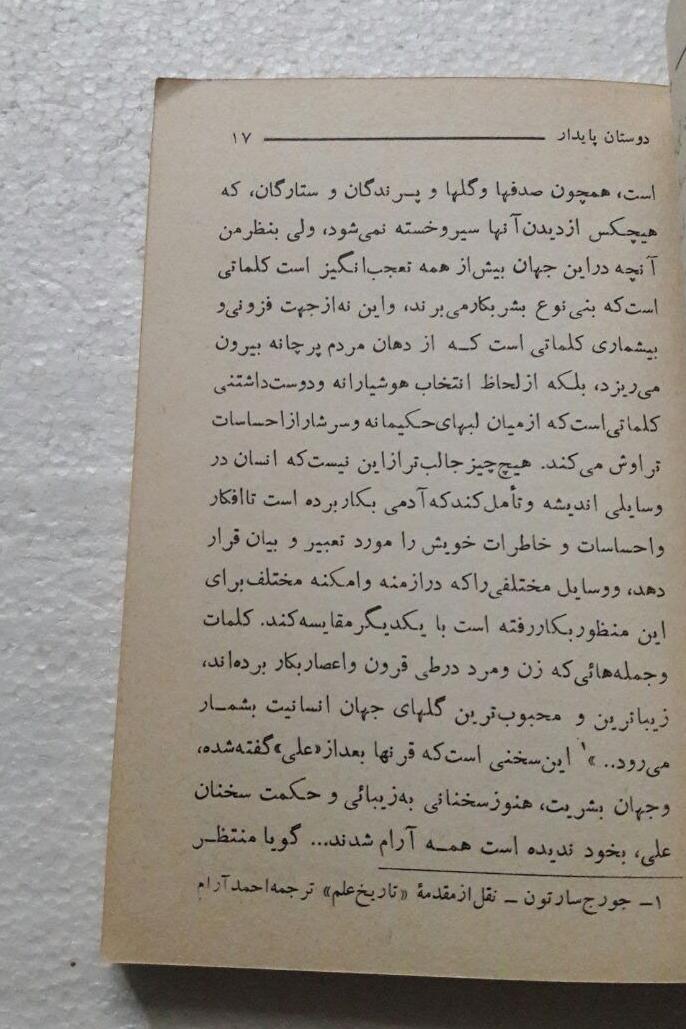 دوستان پایدار ۱۷
است، همچون صدفها وگلها و پـرندگان و ستارگان، که
هیچکس ازدیدن آنها سیروخسته نمی‌شود، ولی بنظرمن
آنچه دراین جهان بیش‌از همه تعجب‌انگیز است کلماتی
است‌که بنی‌نوع بشر بکارمی‌برند، واین نه‌ازجهت فزونی‌و
بیشماری کلماتی است کـه از دهان مردم پرچانه بیرون
می‌ریزد، بلکه ازلحاظ انتخاب هوشیارانه ودوست‌داشتنی
کلماتی‌است‌که ازمیان لبهای‌حکیمانه وسرشارازاحساسات
تراوش می‌کند. هیچ‌چیزجالب‌ترازاین نیست‌که انسان در
وسایلی اندیشه وتأمل‌کندکه‌آدمی بکاربرده است تاافکار
واحساسات و خاطرات خویش را مورد تعبیر و بیان قرار
دهد، ووسایل مختلفی‌راکه درازمنه وامکنه مختلف‌برای
این منظوربکاررفته است با یکدیگرمقایسه‌کند. کلمات
وجمله‌هائی‌که زن ومرد درطی قرون واعصاربکار برده‌اند،
زیباترین و محبوب‌ترین گلهای جهان انسانیت بشمـار
می‌رود.. »۱ این‌سخنی است‌که قرنها بعداز«علی»گفته‌شده،
وجهان بشریت، هنوزسخنانی به‌زیبائی و حکمت سخنان
علی، بخود ندیده است همـه آرام شدند... گویا منتظـر
۱ـ جورج‌سارتون ـ نقل‌ازمقدمهٔ «تاریخ‌علم» ترجمه‌احمدآرام